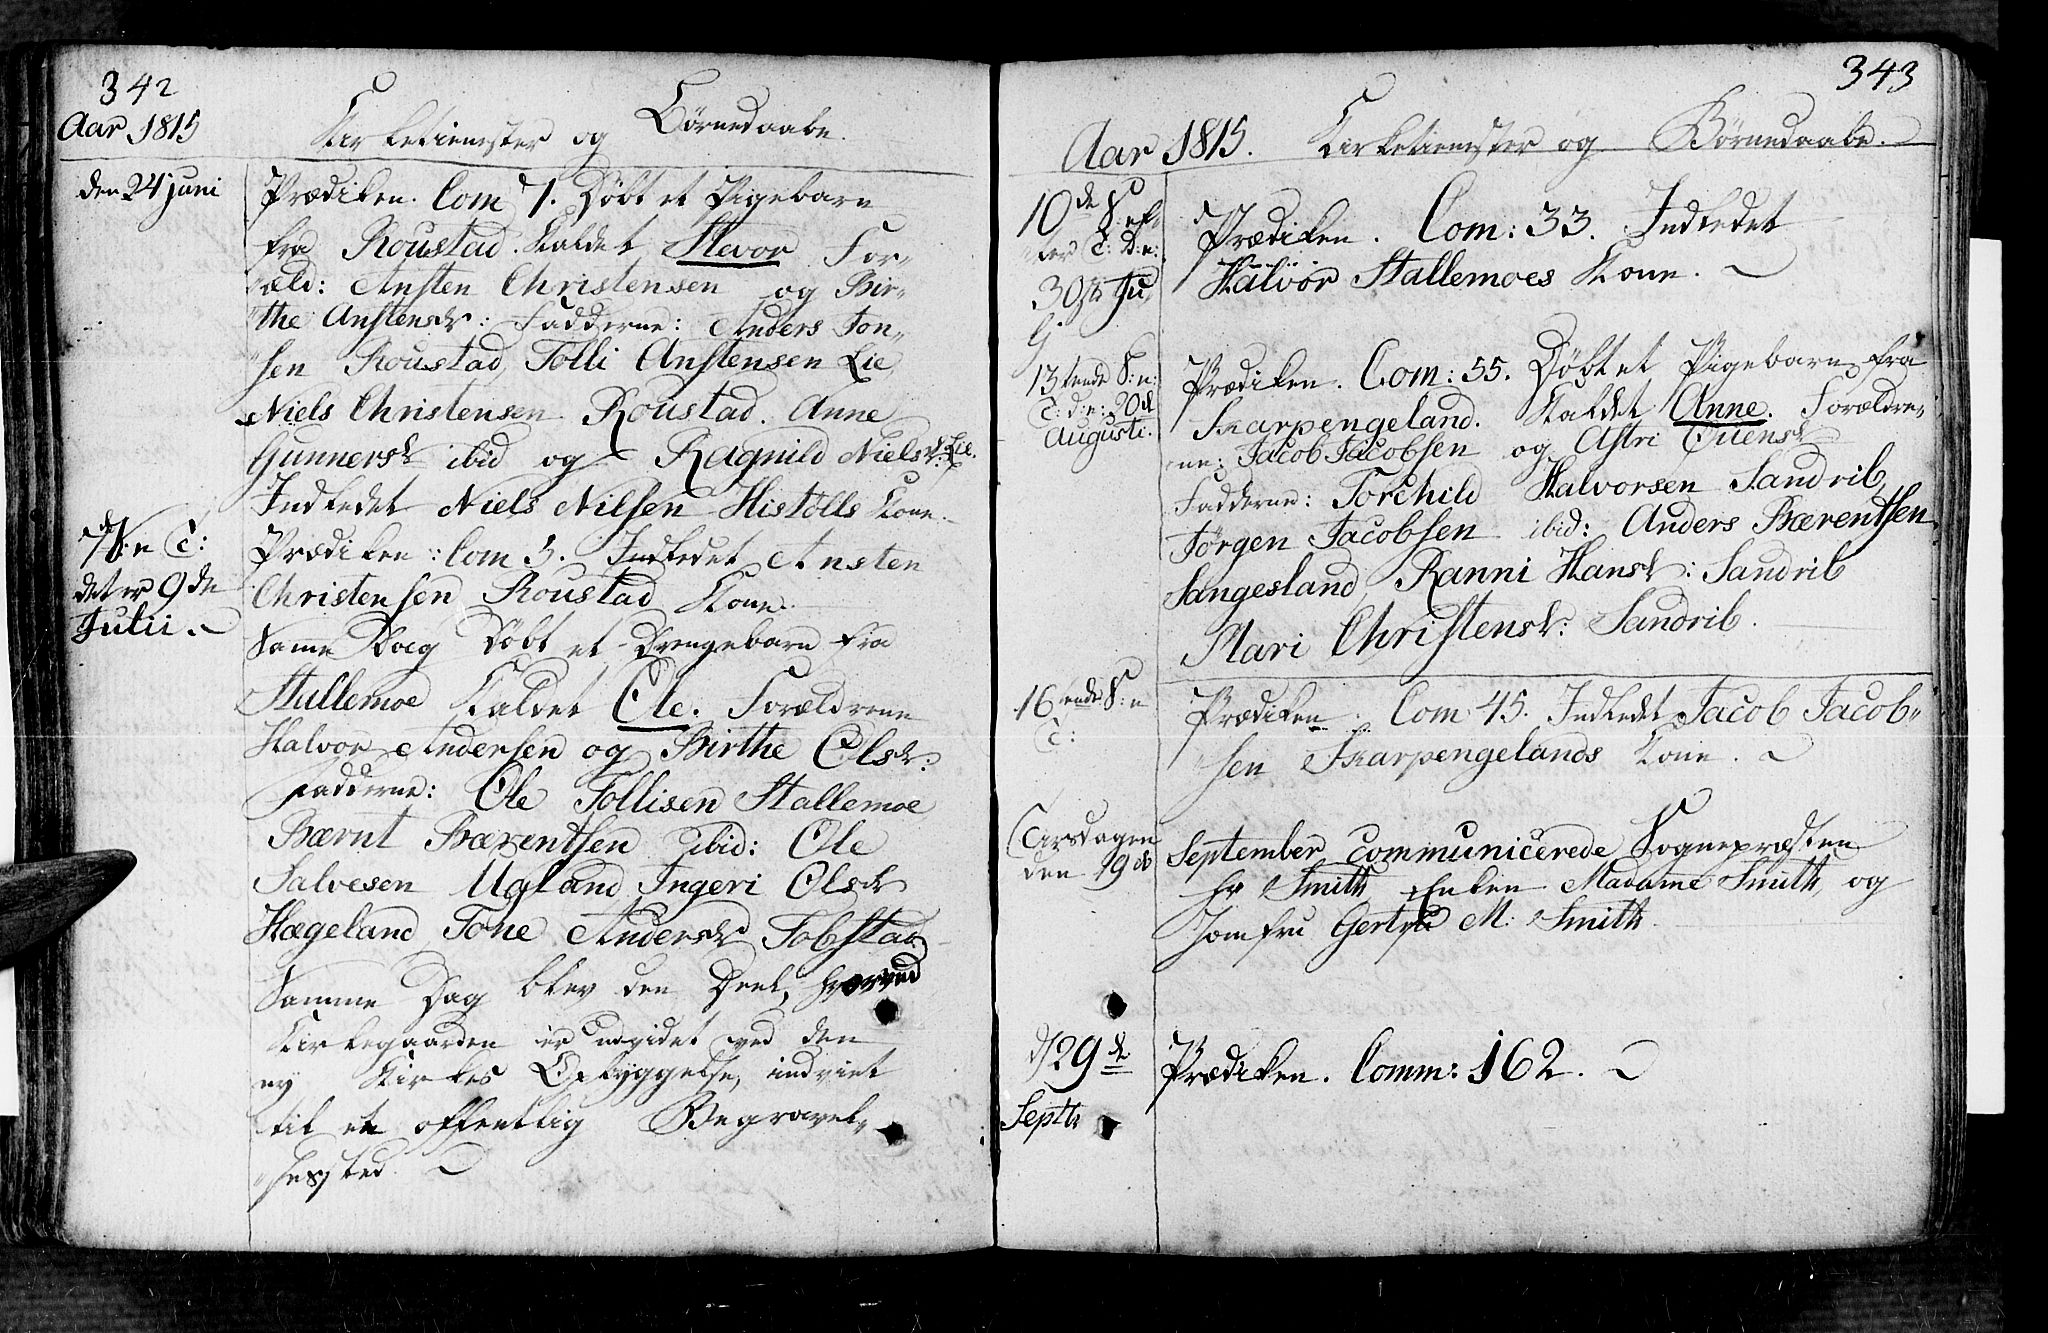 342
Aar 1815
Kirketienester og Börnedaabe.
den 24 juni
Prædiken. Com 7. Döbt et Pigebarn
fra Roustad. Kaldet Hævor For-
æld: Ansten Christensen og Bir-
the Anstensdr: Fadderne: Anders Jon-
sen Roustad, Tolli Anstensen Lie
Niels Christensen Roustad. Anne
Gunnersdr ibid og Ragnild Nielsdr: Lie.
Indledet Niels Nilsen Histölls Kone.
7de S:n T:
det er 9de
Julii.
Prædiken: Com 5. Indledet Ansten
Christensen Roustad Kone.
Samme Dag Döbt et Drengebarn fra
Stallemoe Kaldet Ole. Forældrene
Halvor Andersen og Birthe Olsdr:
Fadderne: Ole Tollisen Stallemoe
Bærnt Bærentsen ibid: Ole
Salvesen Ugland Ingeri Olsdr
Hægeland, Tone Andersdr Tobstad
Samme Dag blev den Deel, hvorved
Kirkegaarden er udvidet ved den
ny Kirkes Opbyggelse, indviet
til et offentlig Begravel-
sessted.
343
Aar 1815. Kirketienester og Börnedaabe.
10de S: ef-
ter T: D:e:
30te Ju-
lj
Prædiken. Com: 33. Indledet
Halvor Stallemoes Kone.
13tende S:n:
T: d:e: 20de
Augusti.
Prædiken. Com: 55. Döbt et Pigebarn fra
Skarpengeland. Kaldet Anne. Forældre-
ne: Jacob Jacobsen og Astri Ouensdr
Fadderne: Torchild Halvorsen Sandrib,
Jörgen Jacobsen ibid: Anders Bærentsen
Sangesland, Ranni Hansdr: Sandrib
Mari Christensdr: Sandrib.
16tende S:n
T:
Prædiken. Com 45. Indledet Jacob Jacob-
sen Skarpengelands Kone.
Tirsdagen
den 19de
September communicerede Sognepræsten
Hr Smith, Enken Madame Smith, og
Jomfru Gertru M: Smith.
d 29de
Septbr
Prædiken. Comm: 162.